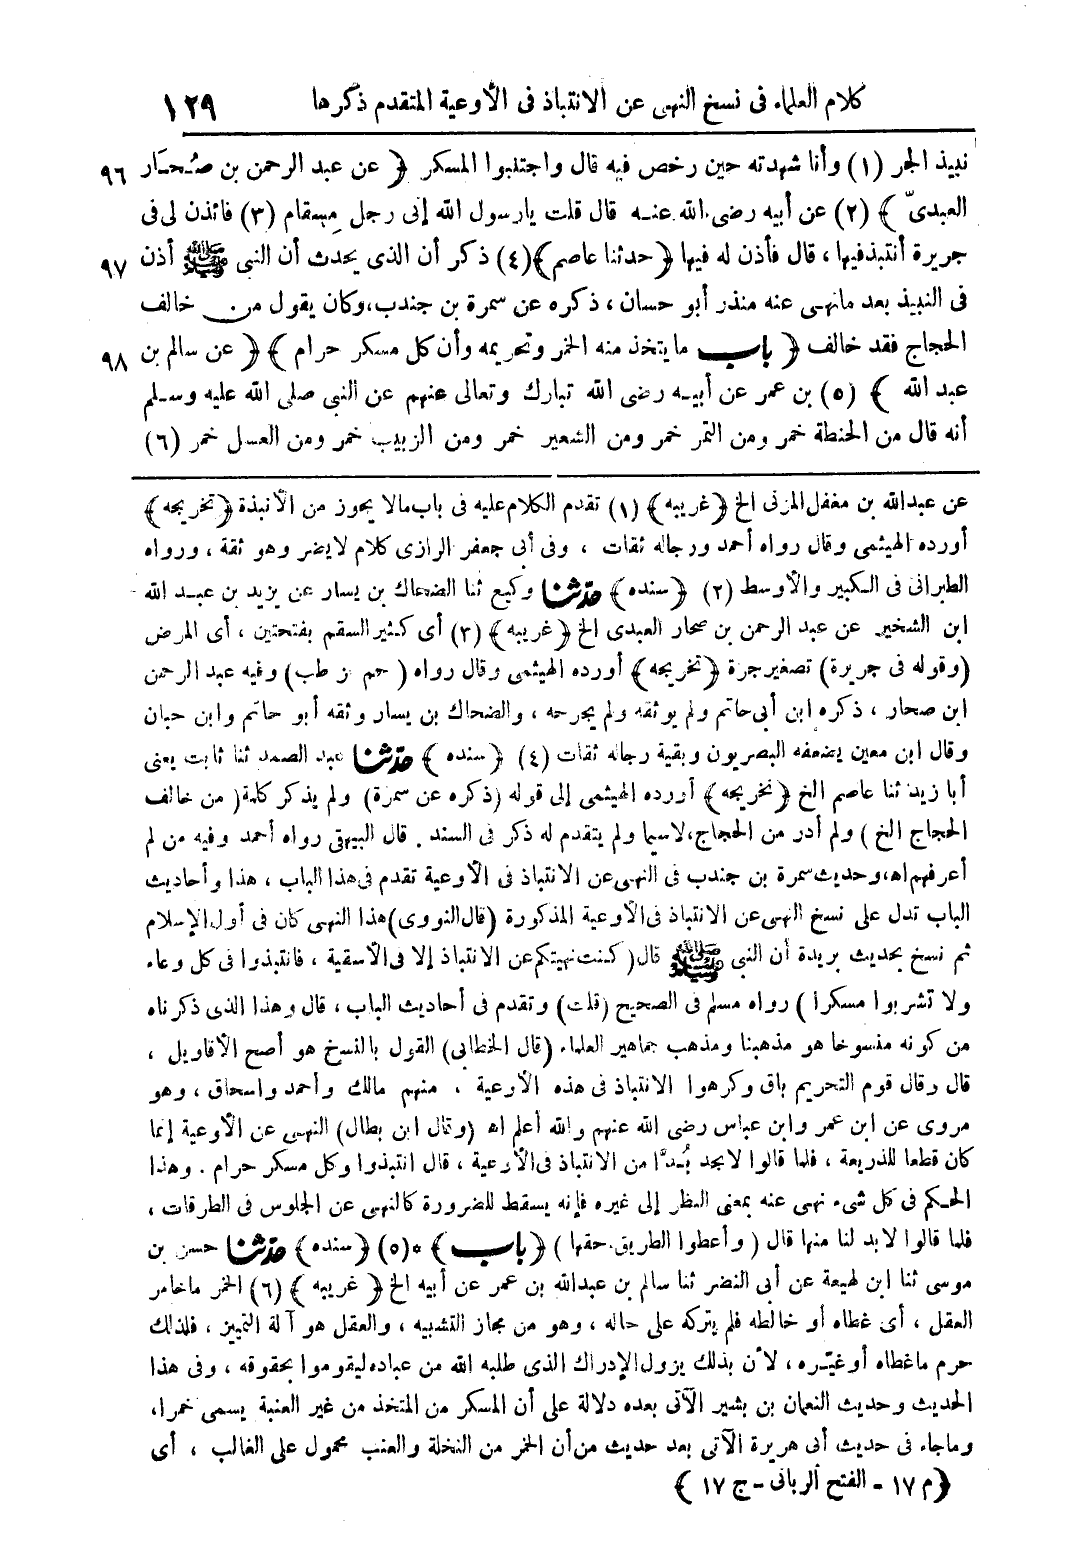 كلام العلماء فى نسخ النهى عن الانتباذ فى الأوعية المتقدم ذكرها ١٢٩
نبيذ الجر (١) وأنا شهدته حين رخص فيه قال واجتنبوا المسكر ﴿ عن عبد الرحمن بن صُحَار ٩٦
العبدىّ ﴾ (٢) عن أبيه رضى الله عنه قال قلت يارسول الله إنى رجل مسقام (٣) فائذن لى فى
جريرة أنتبذ فيها ، قال فأذن له فيها ﴿ حدثنا عاصم ﴾ (٤) ذكر أن الذى يحدث أن النبى ﷺ أذن ٩٧
فى النبيذ بعد مانهى عنه منذر أبو حسان ، ذكره عن سمرة بن جندب، وكان يقول من خالف
الحجاج فقد خالف ﴿ باب ما يتخذ منه الخمر وتحريمه وأن كل مسكر حرام ﴾ ﴿ عن سالم بن ٩٨
عبد الله ﴾ (٥) بن عمر عن أبيه رضى الله تبارك وتعالى عنهم عن النبى صلى الله عليه وسلم
أنه قال من الحنطة خمر ومن التمر خمر ومن الشعير خمر ومن الزبيب خمر ومن العسل خمر (٦)
عن عبدالله بن مغفل المزنى الخ ﴿ غريبه ﴾ (١) تقدم الكلام عليه فى باب مالا يجوز من الأنبذة ﴿ تخريجه ﴾
أورده الهيثمى وقال رواه أحمد ورجاله ثقات ، وفى أبى جعفر الرازى كلام لايضر وهو ثقة ، ورواه
الطبرانى فى الكبير والأوسط (٢) ﴿ سنده ﴾ حدّثنا وكيع ثنا الضحاك بن يسار عن يزيد بن عبد الله
ابن الشخير عن عبد الرحمن بن صحار العبدى الخ ﴿ غريبه ﴾ (٣) أى كثير السقم بفتحتين ، أى المرض
(وقوله فى جريرة) تصغير جرة ﴿ تخريجه ﴾ أورده الهيثمى وقال رواه ( حم بز طب) وفيه عبد الرحمن
ابن صحار ، ذكره ابن أبى حاتم ولم يوثقه ولم يجرحه ، والضحاك بن يسار وثقه أبو حاتم وابن حبان
وقال ابن معين يضعفه البصريون وبقية رجاله ثقات (٤) ﴿ سنده ﴾ حدّثنا عبد الصمد ثنا ثابت يعنى
أبا زيد ثنا عاصم الخ ﴿ تخريجه ﴾ أورده الهيثمى إلى قوله (ذكره عن سمرة) ولم يذكر كلمة( من خالف
الحجاج الخ ) ولم أدر من الحجاج، لاسيما ولم يتقدم له ذكر فى السند . قال البيهقى رواه أحمد وفيه من لم
أعرفهم اهـ، وحديث سمرة بن جندب فى النهى عن الانتباذ فى الأوعية تقدم فى هذا الباب ، هذا وأحاديث
الباب تدل على نسخ النهى عن الانتباذ فى الأوعية المذكورة (قال النووى) هذا النهى كان فى أول الإسلام
ثم نسخ بحديث بريدة أن النبى ﷺ قال( كنت نهيتكم عن الانتباذ إلا فى الأسقية ، فانتبذوا فى كل وعاء
ولا تشربوا مسكرا ) رواه مسلم فى الصحيح (قلت) وتقدم فى أحاديث الباب ، قال وهذا الذى ذكرناه
من كونه منسوخا هو مذهبنا ومذهب جماهير العلماء (قال الخطابى) القول بالنسخ هو أصح الأقاويل ،
قال وقال قوم التحريم باق وكرهوا الانتباذ فى هذه الأوعية ، منهم مالك وأحمد واسحاق ، وهو
مروى عن ابن عمر وابن عباس رضى الله عنهم والله أعلم اهـ (وقال ابن بطال) النهى عن الأوعية إنما
كان قطعا للذريعة ، فلما قالوا لانجد بُدًّا من الانتباذ فى الأوعية ، قال انتبذوا وكل مسكر حرام . وهذا
الحكم فى كل شىء نهى عنه بمعنى النظر إلى غيره فإنه يسقط للضرورة كالنهى عن الجلوس فى الطرقات ،
فلما قالوا لابد لنا منها قال ( وأعطوا الطريق حقها ) ﴿ باب ﴾ * (٥) ﴿ سنده ﴾ حدّثنا حسن بن
موسى ثنا ابن لهيعة عن أبى النضر ثنا سالم بن عبدالله بن عمر عن أبيه الخ ﴿ غريبه ﴾ (٦) الخمر ماخامر
العقل ، أى غطاه أو خالطه فلم يتركه على حاله ، وهو من مجاز التشبيه ، والعقل هو آلة التمييز ، فلذلك
حرم ماغطاه أو غيّره ، لأن بذلك يزول الإدراك الذى طلبه الله من عباده ليقوموا بحقوقه ، وفى هذا
الحديث وحديث النعمان بن بشير الآتى بعده دلالة على أن المسكر من المتخذ من غير العنبة يسمى خمرا،
وماجاء فى حديث أبى هريرة الآتى بعد حديث من أن الخمر من النخلة والعنب محمول على الغالب ، أى
﴿ م ١٧ - الفتح الربانى - ج ١٧ ﴾